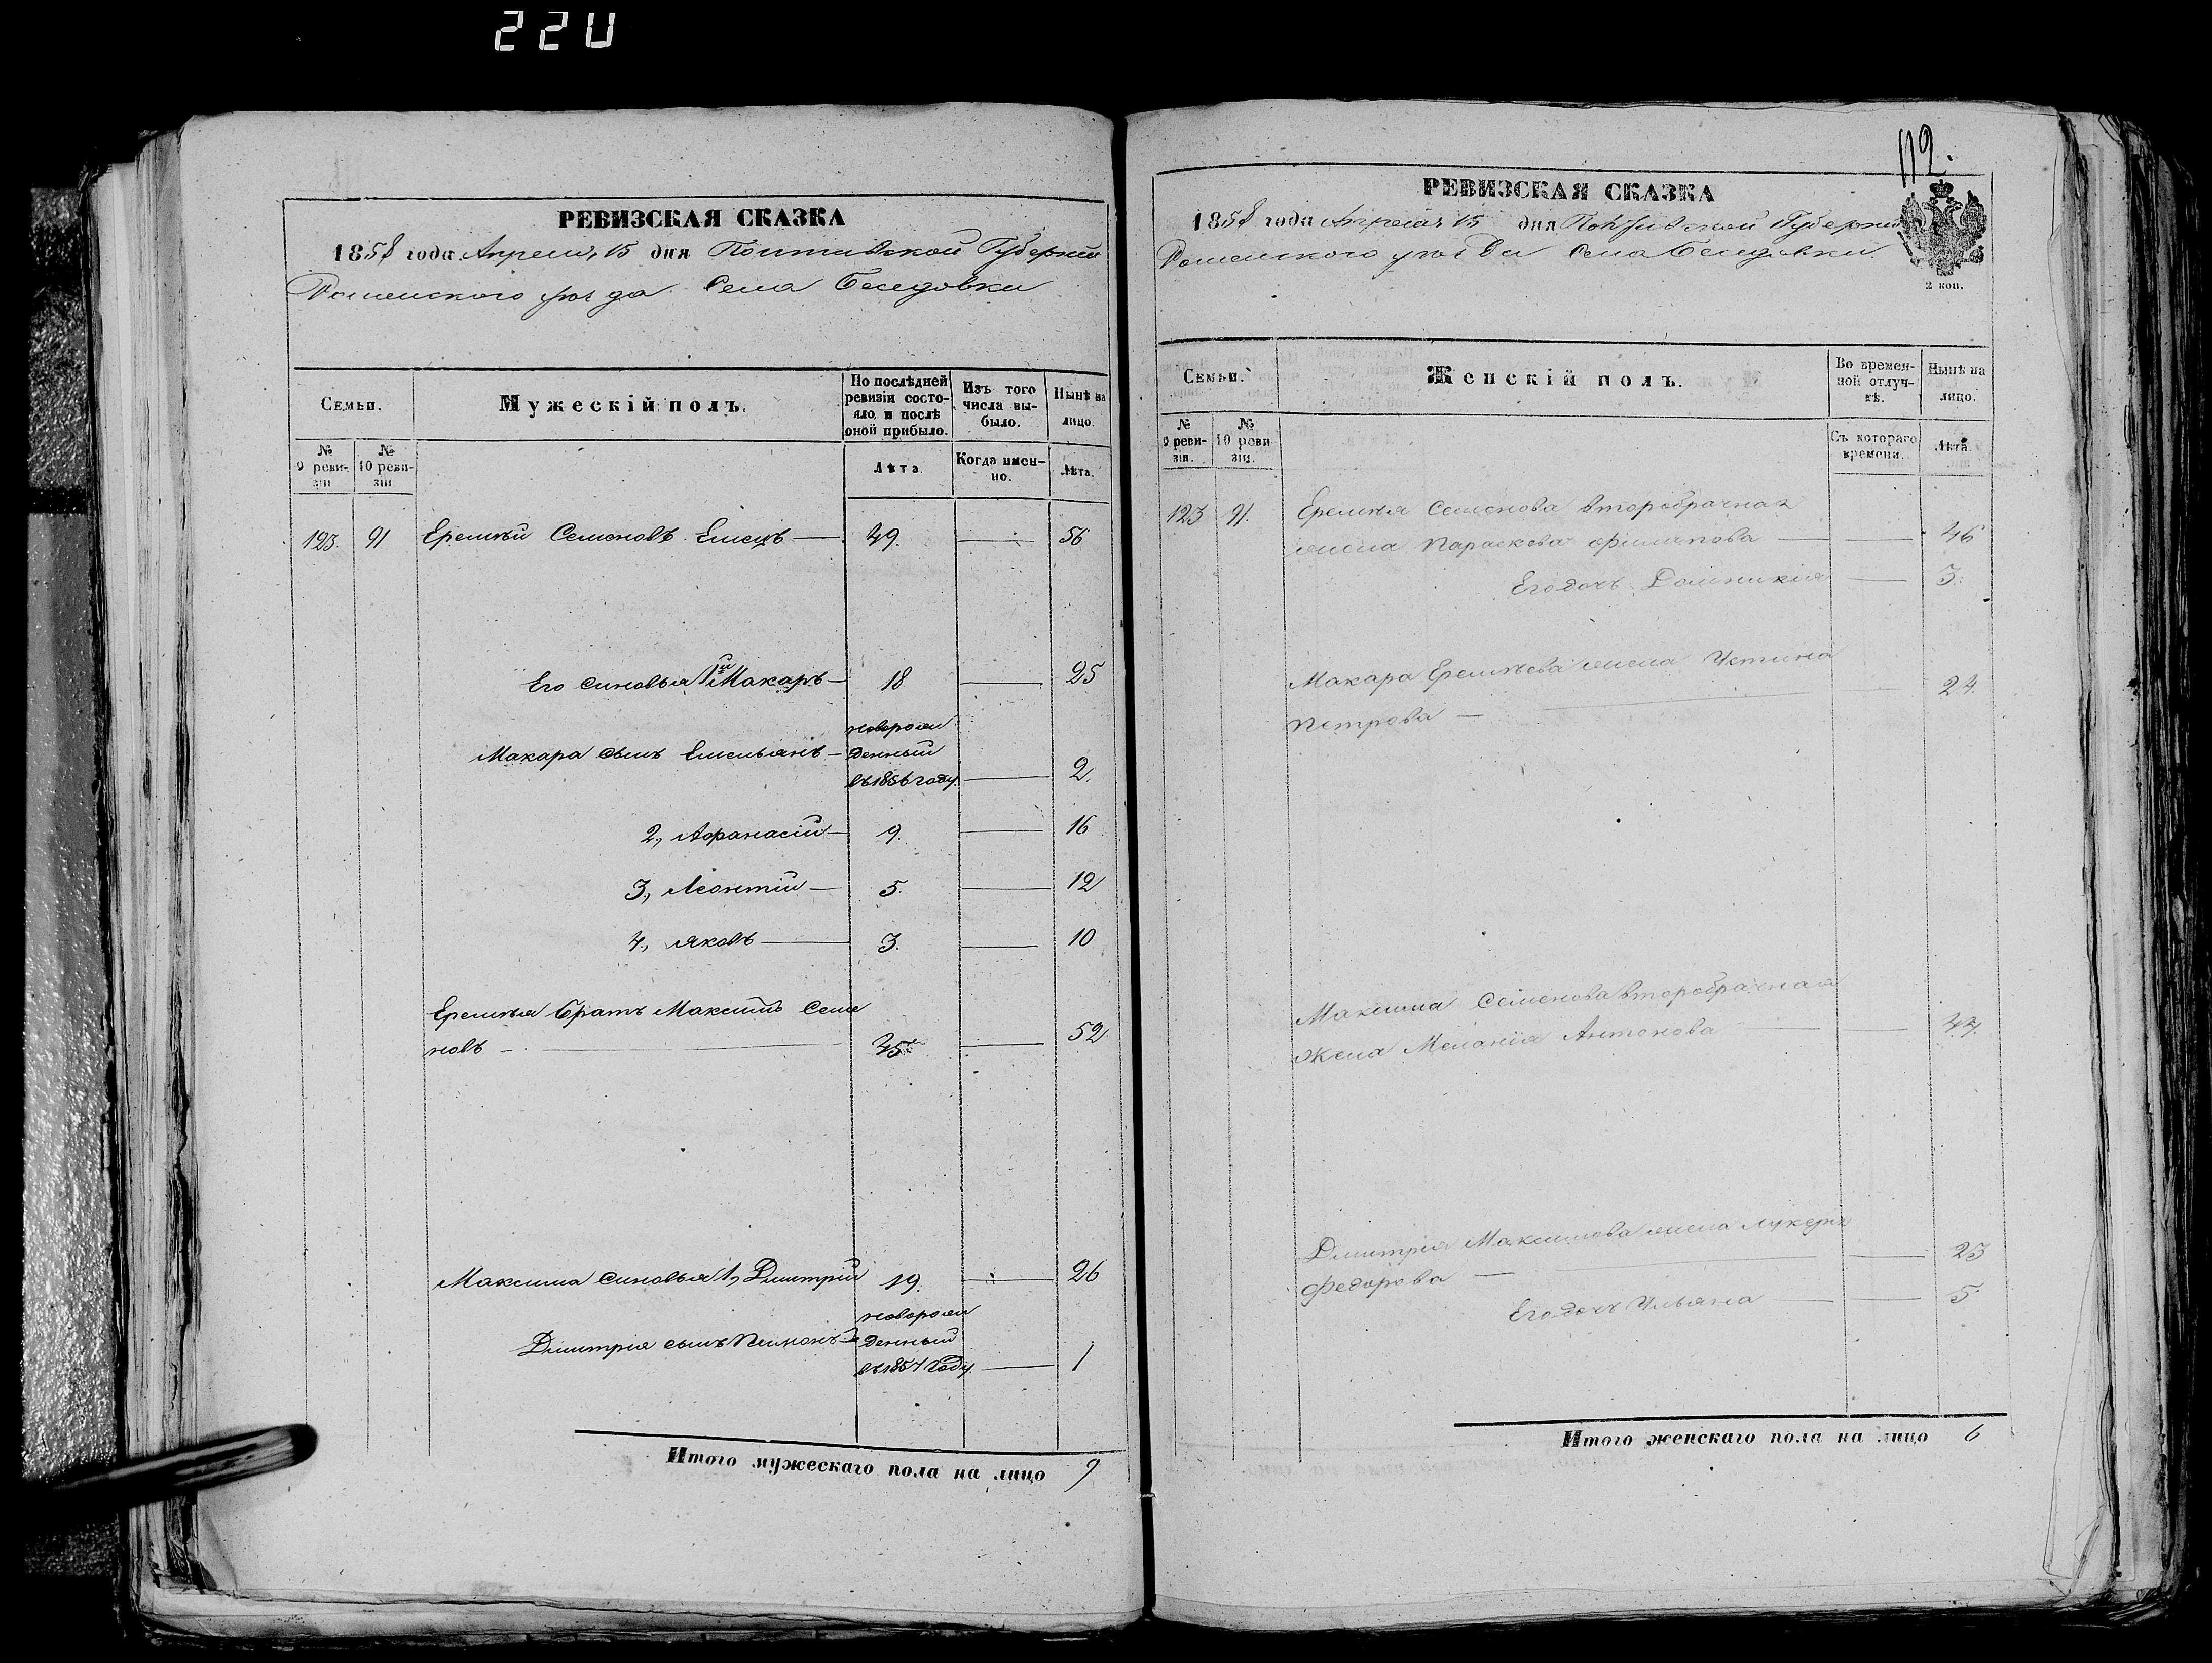 220
РЕВИЗСКАЯ СКАЗКА
1858 года Апреля 15 дня Полтавской Губернии
Роменского уезда Села Беседовки
Семьи.
Мужескій полъ.
По послѣдней ревизіи состояло, и послѣ оной прибыло.
Изъ того числа выбыло.
Нынѣ на лицо.
№ 9 ревизіи
№ 10 ревизіи
Лѣта.
Когда именно.
Лѣта.
123. 91 Еремѣй Семеновъ Емецъ — 49. — 56
Его синовья 1й Макаръ — 18 — 25
новорож
Макара сынъ Емельянъ — денный
въ 1856 году. — 2.
2, Афанасій — 9. — 16
3, Леонтій — 5. — 12
4, Яковъ — 3. — 10
Еремѣя Братъ Максимъ Семе
новъ — 45. — 52
Максима синовья 1, Дмитрій 19. — 26
новорож
Дмитрія сынъ Пименъ — денный
въ 1857 Году. — 1
Итого мужескаго пола на лицо 9
112.
РЕВИЗСКАЯ СКАЗКА
1858 года Апреля 15 дня Полтавской Губернии
Роменского уезда Села Беседовки
2 коп.
Семьи.
Женскій полъ.
Во временной отлучкѣ.
Нынѣ на лицо.
№ 9 ревизіи.
№ 10 ревизіи.
Съ котораго времени.
Лѣта.
123 91. Еремѣя Семенова второбрачная
жена Параскева Филипова — — 46
Его дочь Домникія — 3.
Макара Еремѣева жена Устина
Петрова — — 24.
Максима Семенова второбрачная
Жена Меланія Антонова — —
Дмитрія Максимова жена Лукеря
Федорова — — 23
Его дочь Ульяна — — 5
Итого женскаго пола на лицо 6